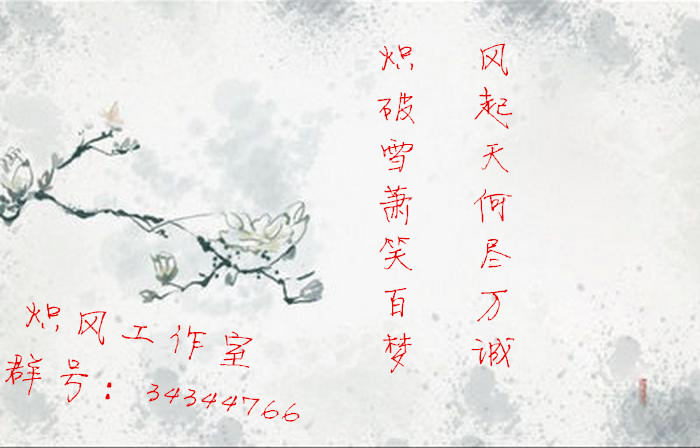 风起天何尽万诚
炽破雪萧笑百梦
炽风工作室
群号：34344766